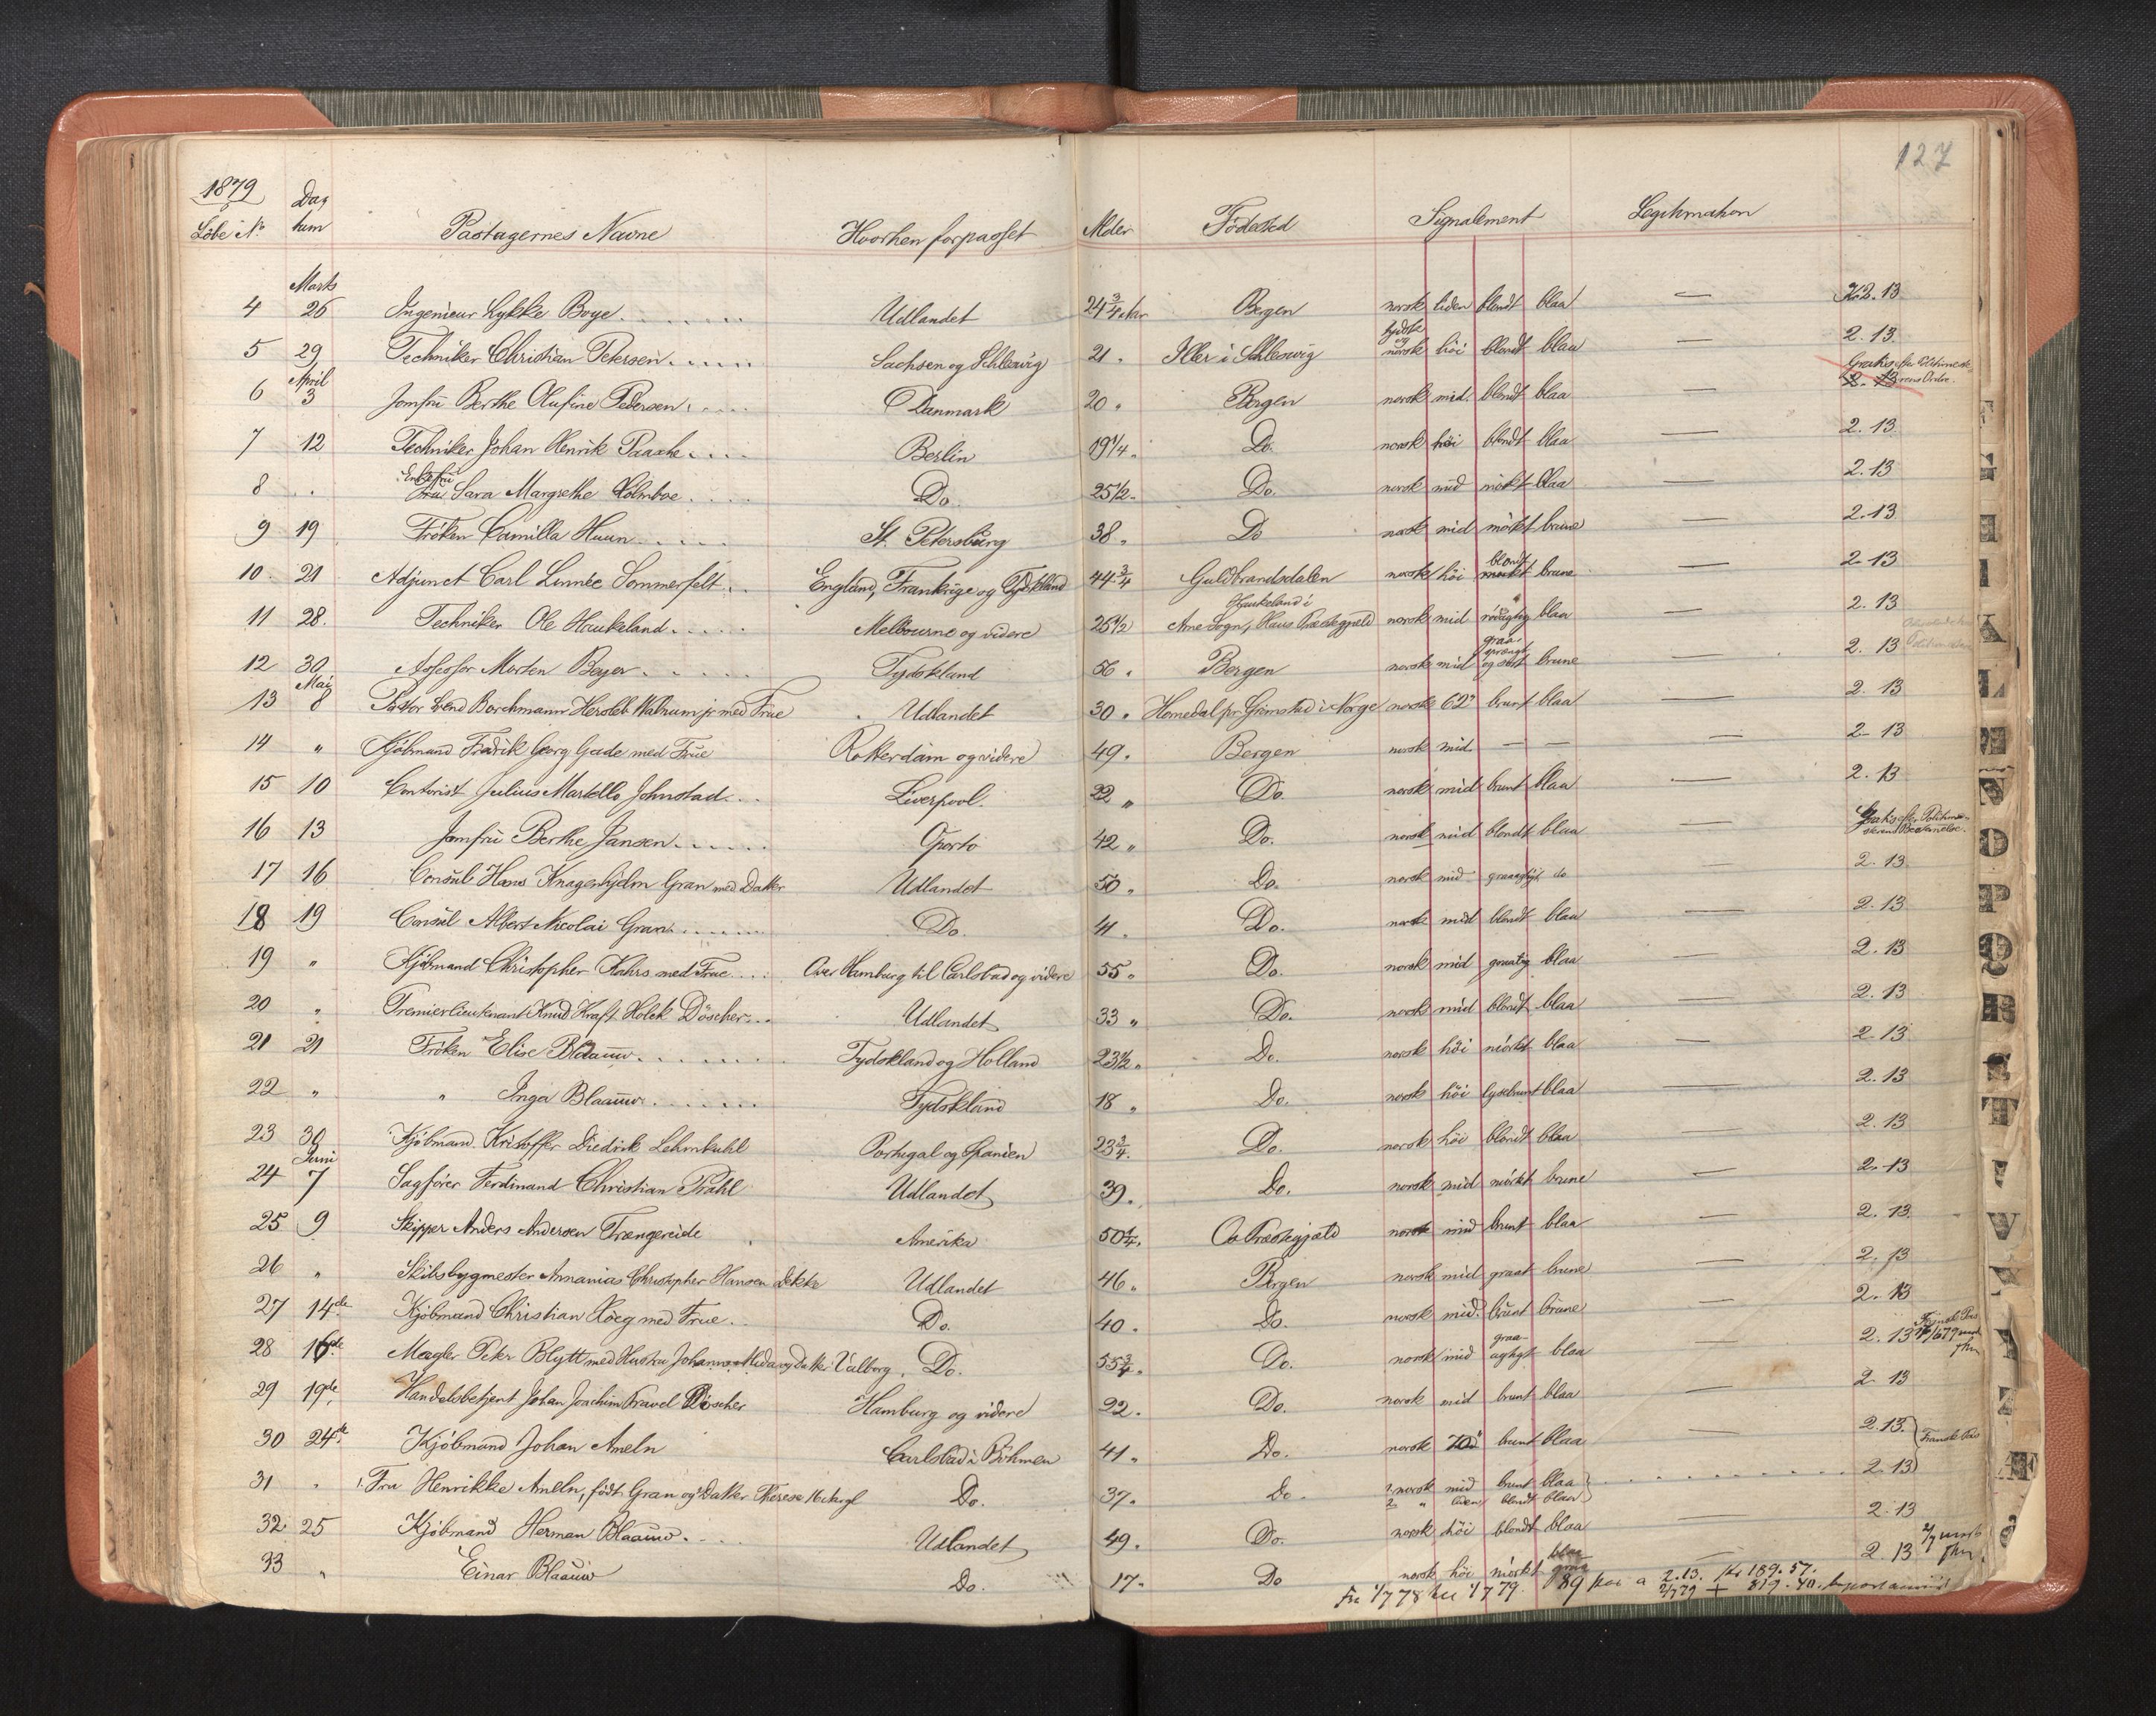 127
1879
Löbe No Dag tum Passagernes Navne Hvorhen forpasset Alder Födested Signalement Legitimation
Marts
4 26 Ingenieur Lykke Boye Udlandet 24 3/4 Aar Bergen norsk liden blondt blaa — Kr 2.13
tydsk og
5 29 Techniker Christian Petersen Sachsen og Schleswig 21 " Iller i Schleswig norsk höi blondt blaa — 2.13
April
Gratis efter Politimesterens Ordre.
6 3 Jomfru Berthe Olufine Pedersen Danmark 20 " Bergen norsk mid. blondt blaa 2.13
7 12 Techniker Johan Henrik Paasche Berlin 19 1/4 " Do. norsk höi blondt blaa — 2.13
Enkefru
8 " Fru Sara Margrethe Holmboe Do. 25 1/2 " Do. norsk mid mörkt blaa — 2.13
9 19 Fröken Camilla Huun St. Petersburg 38 " Do norsk mid mörkt brune — 2.13
blondt
10 21 Adjunct Carl Linnée Sommerfelt England, Frankrige og Tydskland 44 3/4 Guldbrandsdalen norsk höi mörkt brune — 2.13
Haukeland i
11 28. Techniker Ole Haukeland Melbourne og videre 25 1/2 Arne Sogn, Haus Præstegjæld norsk mid rödagtig blaa — 2.13
graasprængt
12 30 Assessor Morten Beyer Tydskland 56 " Bergen norsk mid og sort brune — 2.13
Mai
13 8 Pastor Svend Borchmann Hersleb Walnum jr med Frue Udlandet 30 " Homedal pr. Grimstad i Norge norsk 62" brunt blaa — 2.13
14 " Kjöbmand Fredrik Georg Gade med Frue Rotterdam og videre 49 " Bergen norsk mid — — — 2.13
15 10 Contorist Julius Martello Johnstad Liverpool. 22 " Do. norsk mid brunt blaa — 2.13
16 13 Jomfru Berthe Jansen Oporto 42 " Do. norsk mid blondt blaa — Gratis efter Politimesterens Bestemmelse.
17 16 Consul Hans Knagenhjelm Gran med Datter Udlandet 50 " Do. norsk mid graaagtigt do — 2.13
18 19 Consul Albert Nicolai Gran Do. 41 " Do. norsk mid blondt blaa — 2.13
19 " Kjöbmand Christopher Kahrs med Frue Over Hamburg til Carlsbad og videre 55 " Do. norsk mid graatig blaa — 2.13
20 " Premierlieutenant Knud Kraft Holck Döscher Udlandet 33 " Do. norsk mid blondt blaa — 2.13
21 21 Fröken Elise Blaauw Tydskland og Holland 23 1/2 " Do. norsk höi mörkt blaa — 2.13
22 " " Inga Blaauw Tydskland 18 " Do. norsk höi lysebrunt blaa — 2.13
23 30 Kjöbmand Kristoffer Diedrik Lehmkuhl Portugal og Spanien 23 3/4 " Do. norsk höi blondt blaa — 2.13
Juni
24 7 Sagförer Ferdinand Christian Prahl Udlandet 39 " Do. norsk mid mörkt brune — 2.13
25 9 Skipper Anders Andersen Trængereide Amerika 50 1/4 " Os Præstegjæld norsk mid brunt blaa — 2.13
26 " Skibsbygmester Annanias Christopher Hansen Dekke Udlandet 46 " Bergen norsk mid graat brune — 2.13
27 14de Kjöbmand Christian Köeg med Frue Do. 40 " Do. norsk mid. brunt brune — 2.13
28 16de Mægler Peter Blytt med Hustru og Datter Valborg. Do. 55 3/4 " Do. norsk mid graaagtigt blaa 2.13 Fransk Pas
29 19de Handelsbetjent Johan Joachim Kravel Döscher Hamburg og videre 22 " Do. norsk mid brunt blaa — 2.13
30 24de Kjöbmand Johan Ameln Carlsbad i Böhmen 41 " Do. norsk 70" brunt blaa 2.13 Fransk Pas
31 " Fru Henrikke Ameln, födt Gran og Datter Therese 16 Aar gl Do. 37 " Do. 1 norsk mid brunt blaa 2.13
2 " liden blondt blaa
32 25 Kjöbmand Herman Blaauw Udlandet 49 " Do. norsk höi blondt blaa 2.13
33 " Einar Blaauw Do. 17 " Do norsk höi mörkt blaa — 2.13
Fra 1/7 78 til 1/7 79. 89 Pas a 2.13. Kr 189.57.